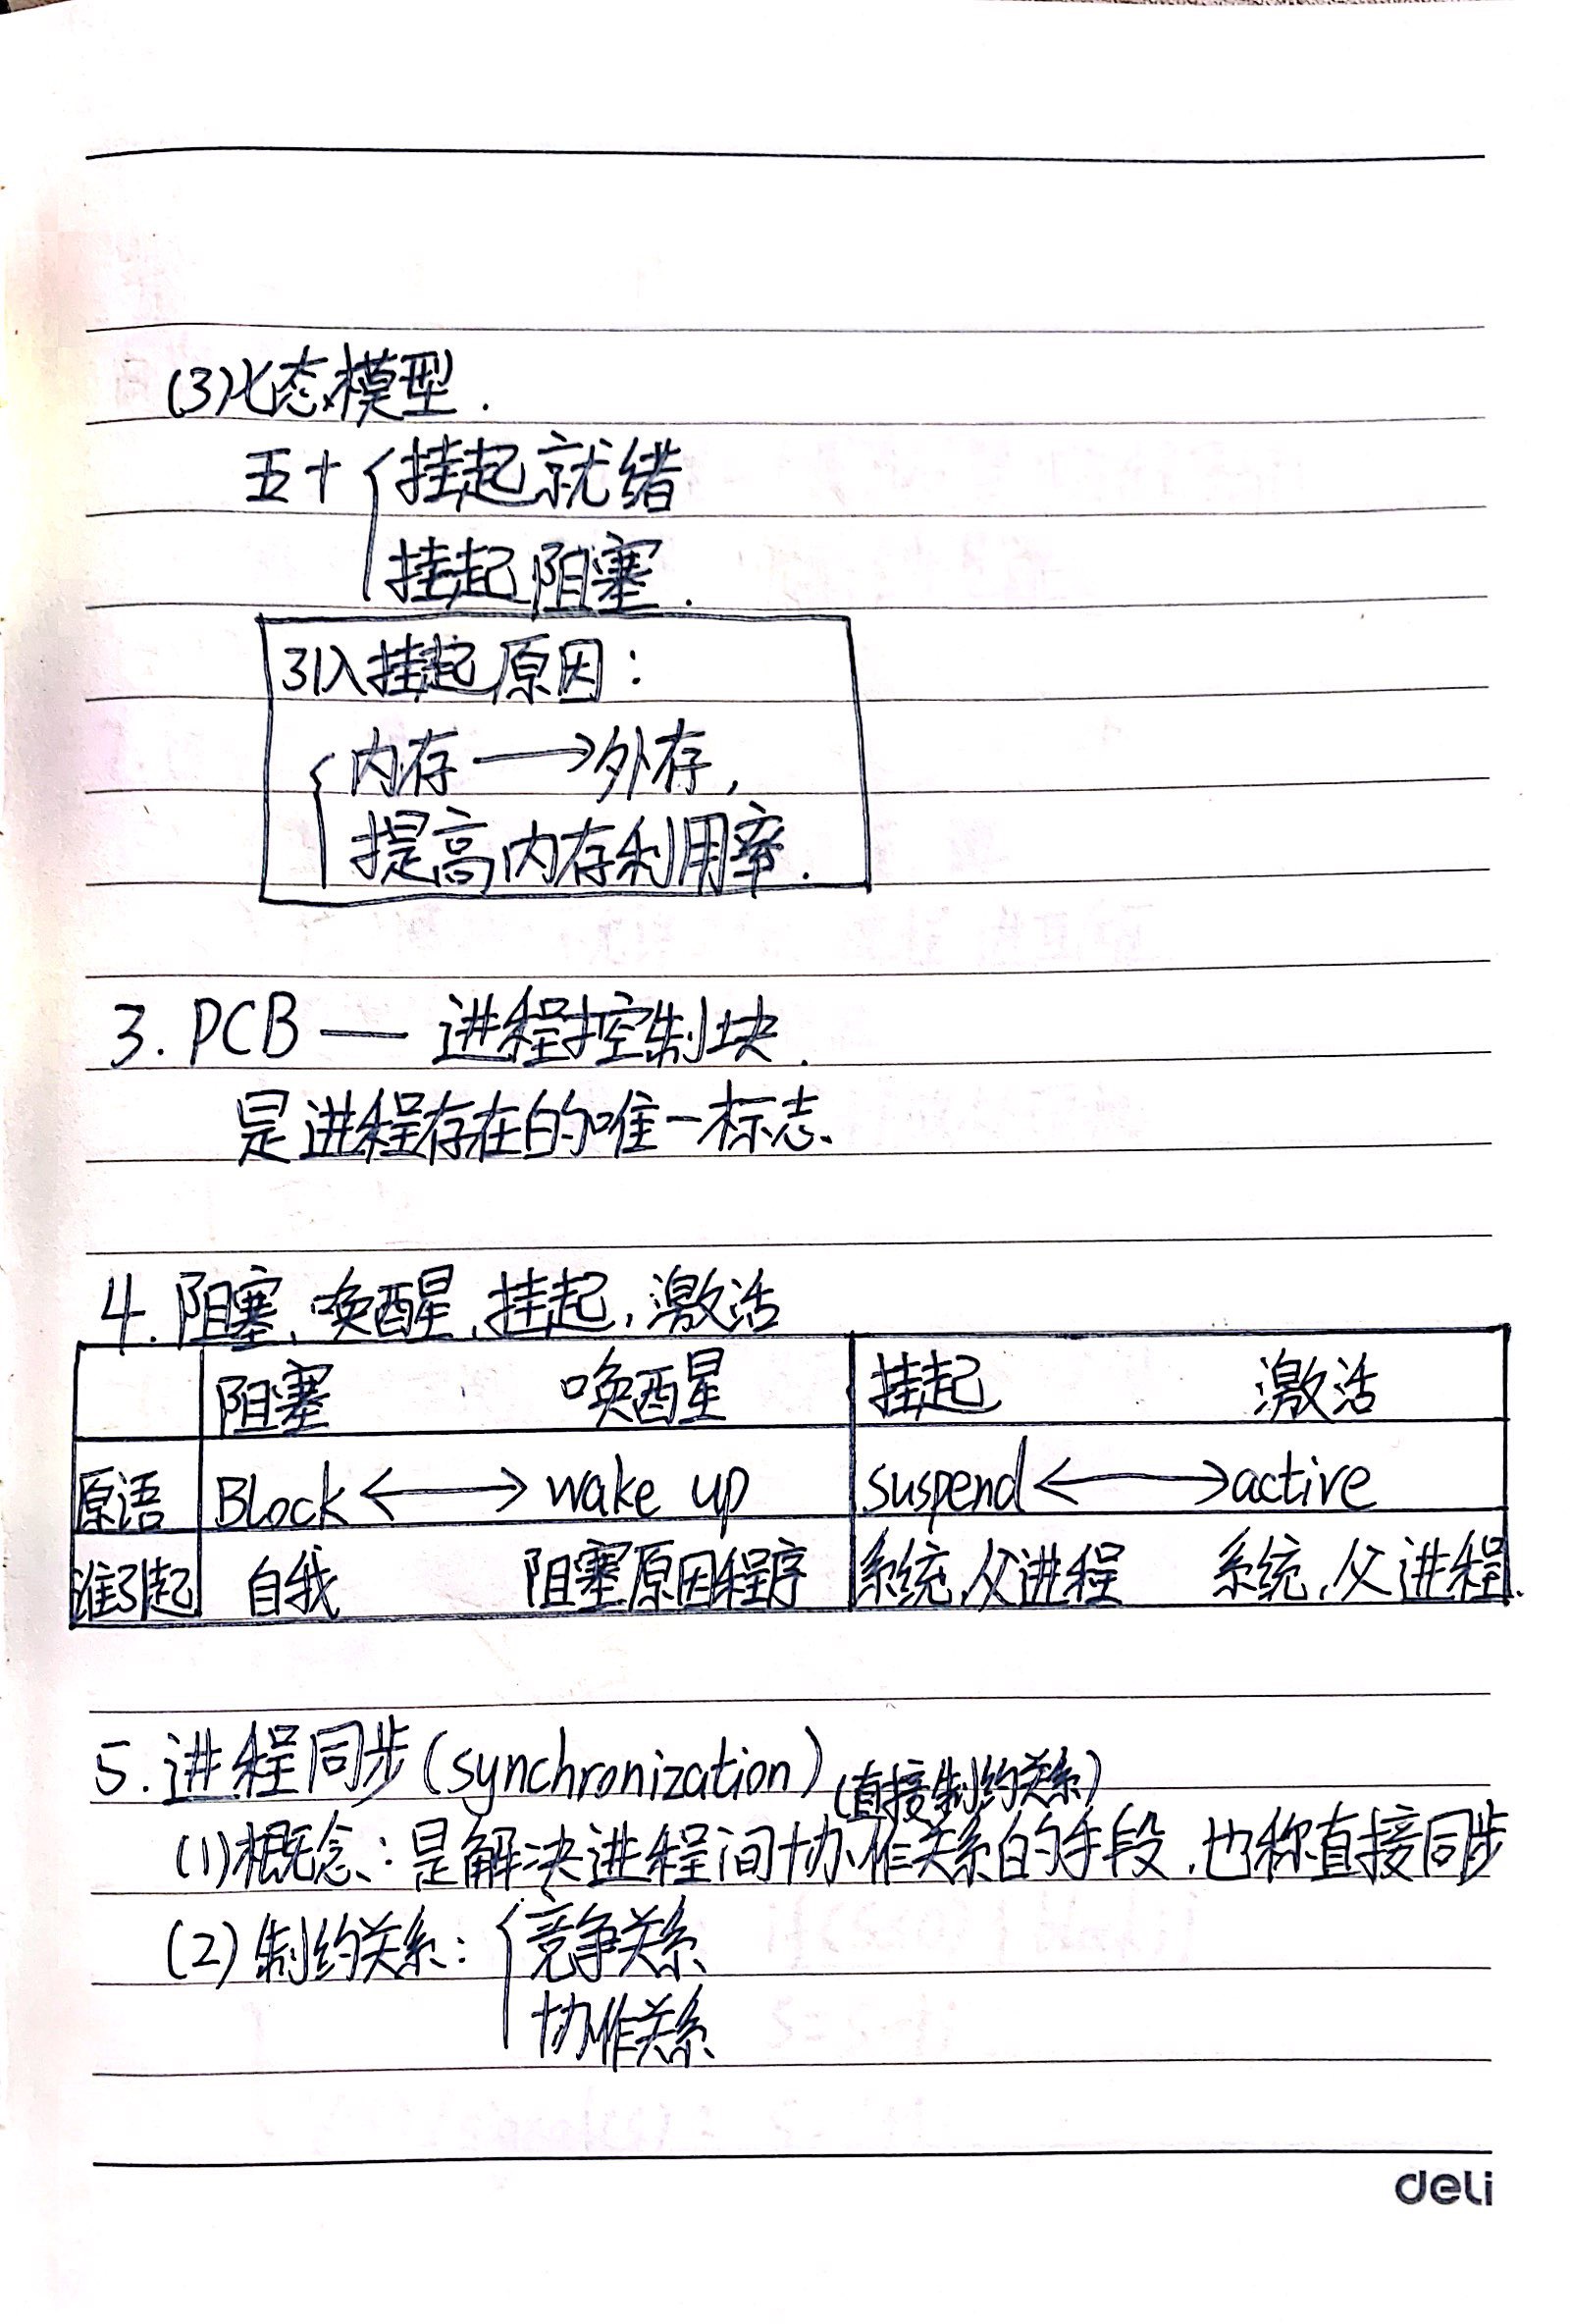 (3)七态模型.
五+{挂起就绪
挂起阻塞.
引入挂起原因:
{内存→外存,
提高内存利用率.
3. PCB — 进程控制块.
是进程存在的唯一标志、
4. 阻塞、唤醒、挂起,激活
阻塞 唤醒 挂起 激活
原语 Block ←→ wake up suspend ←→ active
谁引起 自我 阻塞原因程序 系统,父进程 系统,父进程.
5. 进程同步(synchronization)(直接制约关系)
(1)概念:是解决进程间协作关系的手段,也称直接同步
(2)制约关系:{竞争关系
协作关系
deli